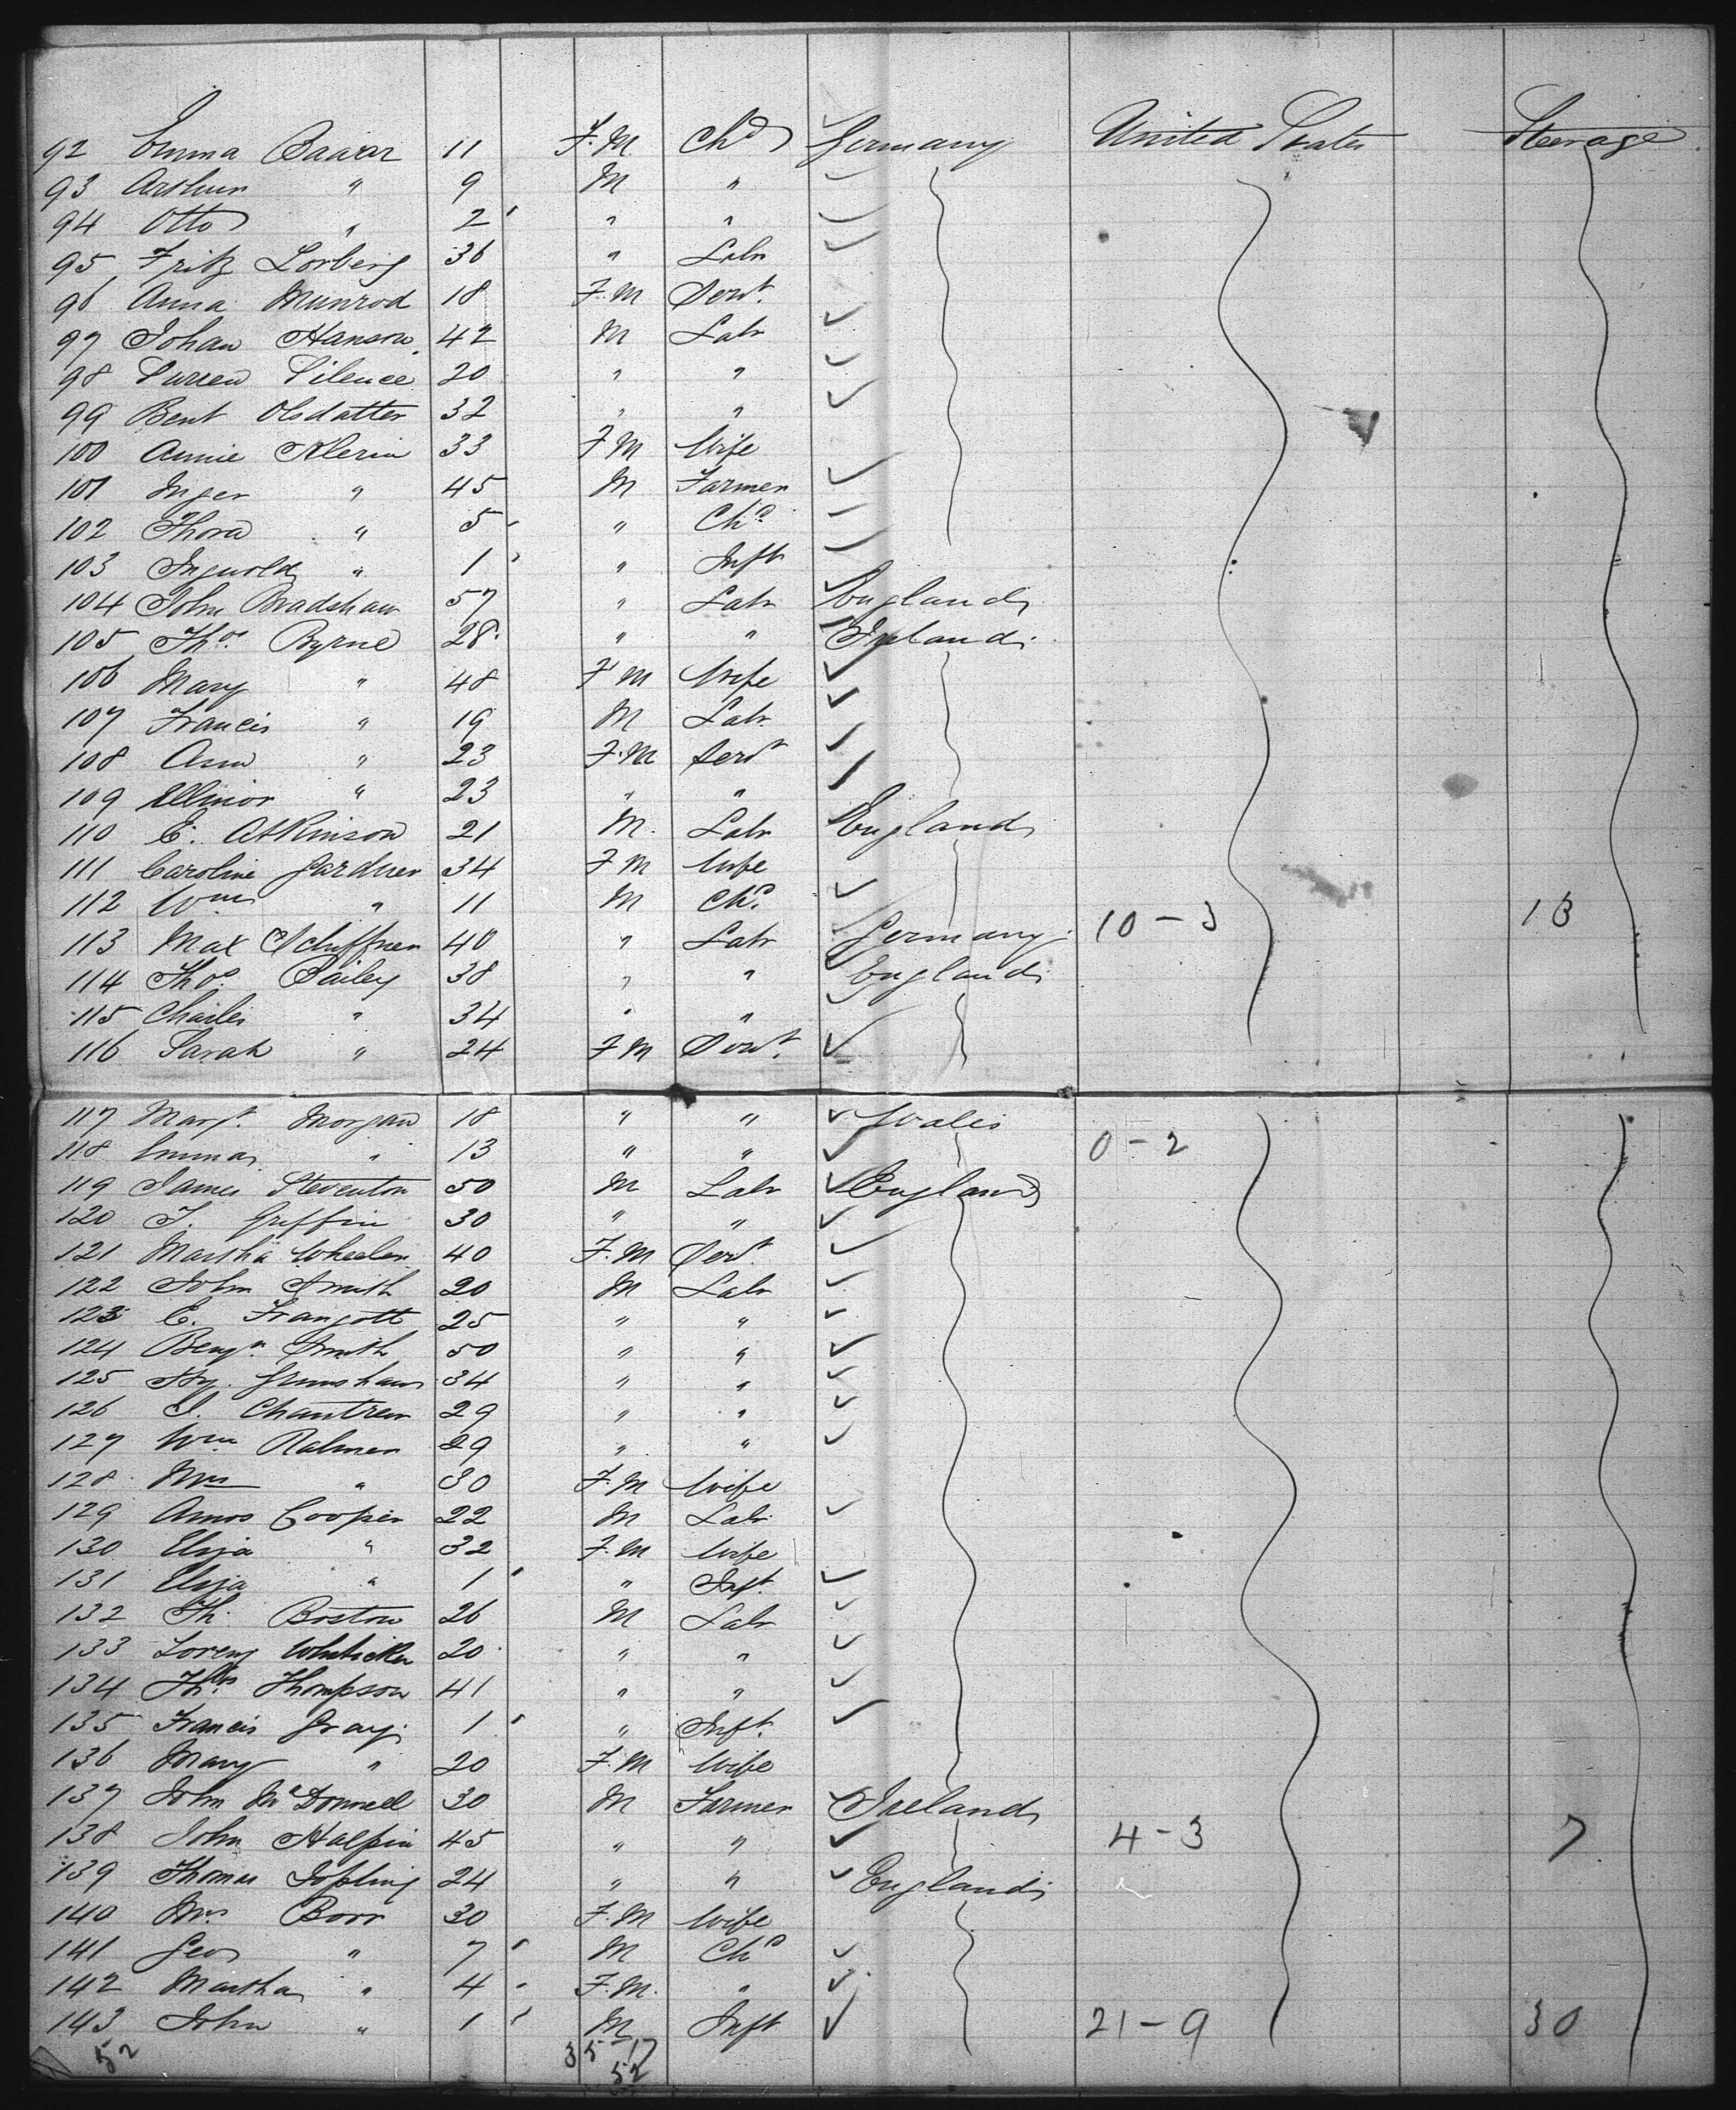 92 Emma Baaxar 11 F.M. Chd Germany United States Steerage
93 Arthur " 9 M "
94 Otto " 2 " "
95 Fritz Lorberg 36 " Labr
96 Anna Munrod 18 F.M Servt.
97 Johan Hanson 42 M Labr
98 Silence 20 " "
99 Bent Olsdatter 32 " "
100 Annie Klerin 33 F M Wife
101 Inger " 45 M Farmer
102 Thora " 5 " Chd.
103 Inguold " 1 " Inft
104 John Bradshaw 57 " Labr England
105 Thos. Byrne 28 " " Ireland
106 Mary " 48 F M Wife
107 Francis " 19 M Labr
108 Ann " 23 F.M Servt
109 Ellinor " 23 " "
110 E. Atkinson 21 M. Labr England
111 Caroline Gardner 34 F M Wife
112 Wm " 11 M Chd.
113 Max Schiffner 40 " Labr Germany 10 - 3 13
114 Thos. Bailey 38 " " England
115 Charles " 34 " "
116 Sarah " 24 F M Servt.
117 Margt. Morgan 18 " " Wales
118 Emma " 13 " " 0 - 2
119 James Steventon 50 M Labr England
120 J. Griffin 30 " "
121 Martha Wheeler 40 F.M Servt.
122 John Smith 20 M Labr
123 E. Frangott 25 " "
124 Benjn. Smith 50 " "
125 Hy. Grimshaw 34 " "
126 J. Chantrew 29 " "
127 Wm Ralmer 29 " "
128 Mrs " 30 F.M Wife
129 Amos Cooper 22 M Labr
130 Eliza " 32 F.M Wife
131 Eliza " 1 " Inft.
132 Th. Boston 26 M Labr
133 Lorenz Whiticker 20 " "
134 Thos. Thompson 41 " "
135 Francis Gray 1 " Inft.
136 Mary " 20 F.M Wife
137 John McDonnell 30 M Farmer Ireland
138 John Halpin 45 " " 4 - 3 7
139 Thomas Jopling 24 " " England
140 Mrs. Borr 30 F.M Wife
141 Geo " 7 M Chd
142 Martha " 4 F.M. "
143 John " 1 M Inft 21 - 9 30
52 35 17
52